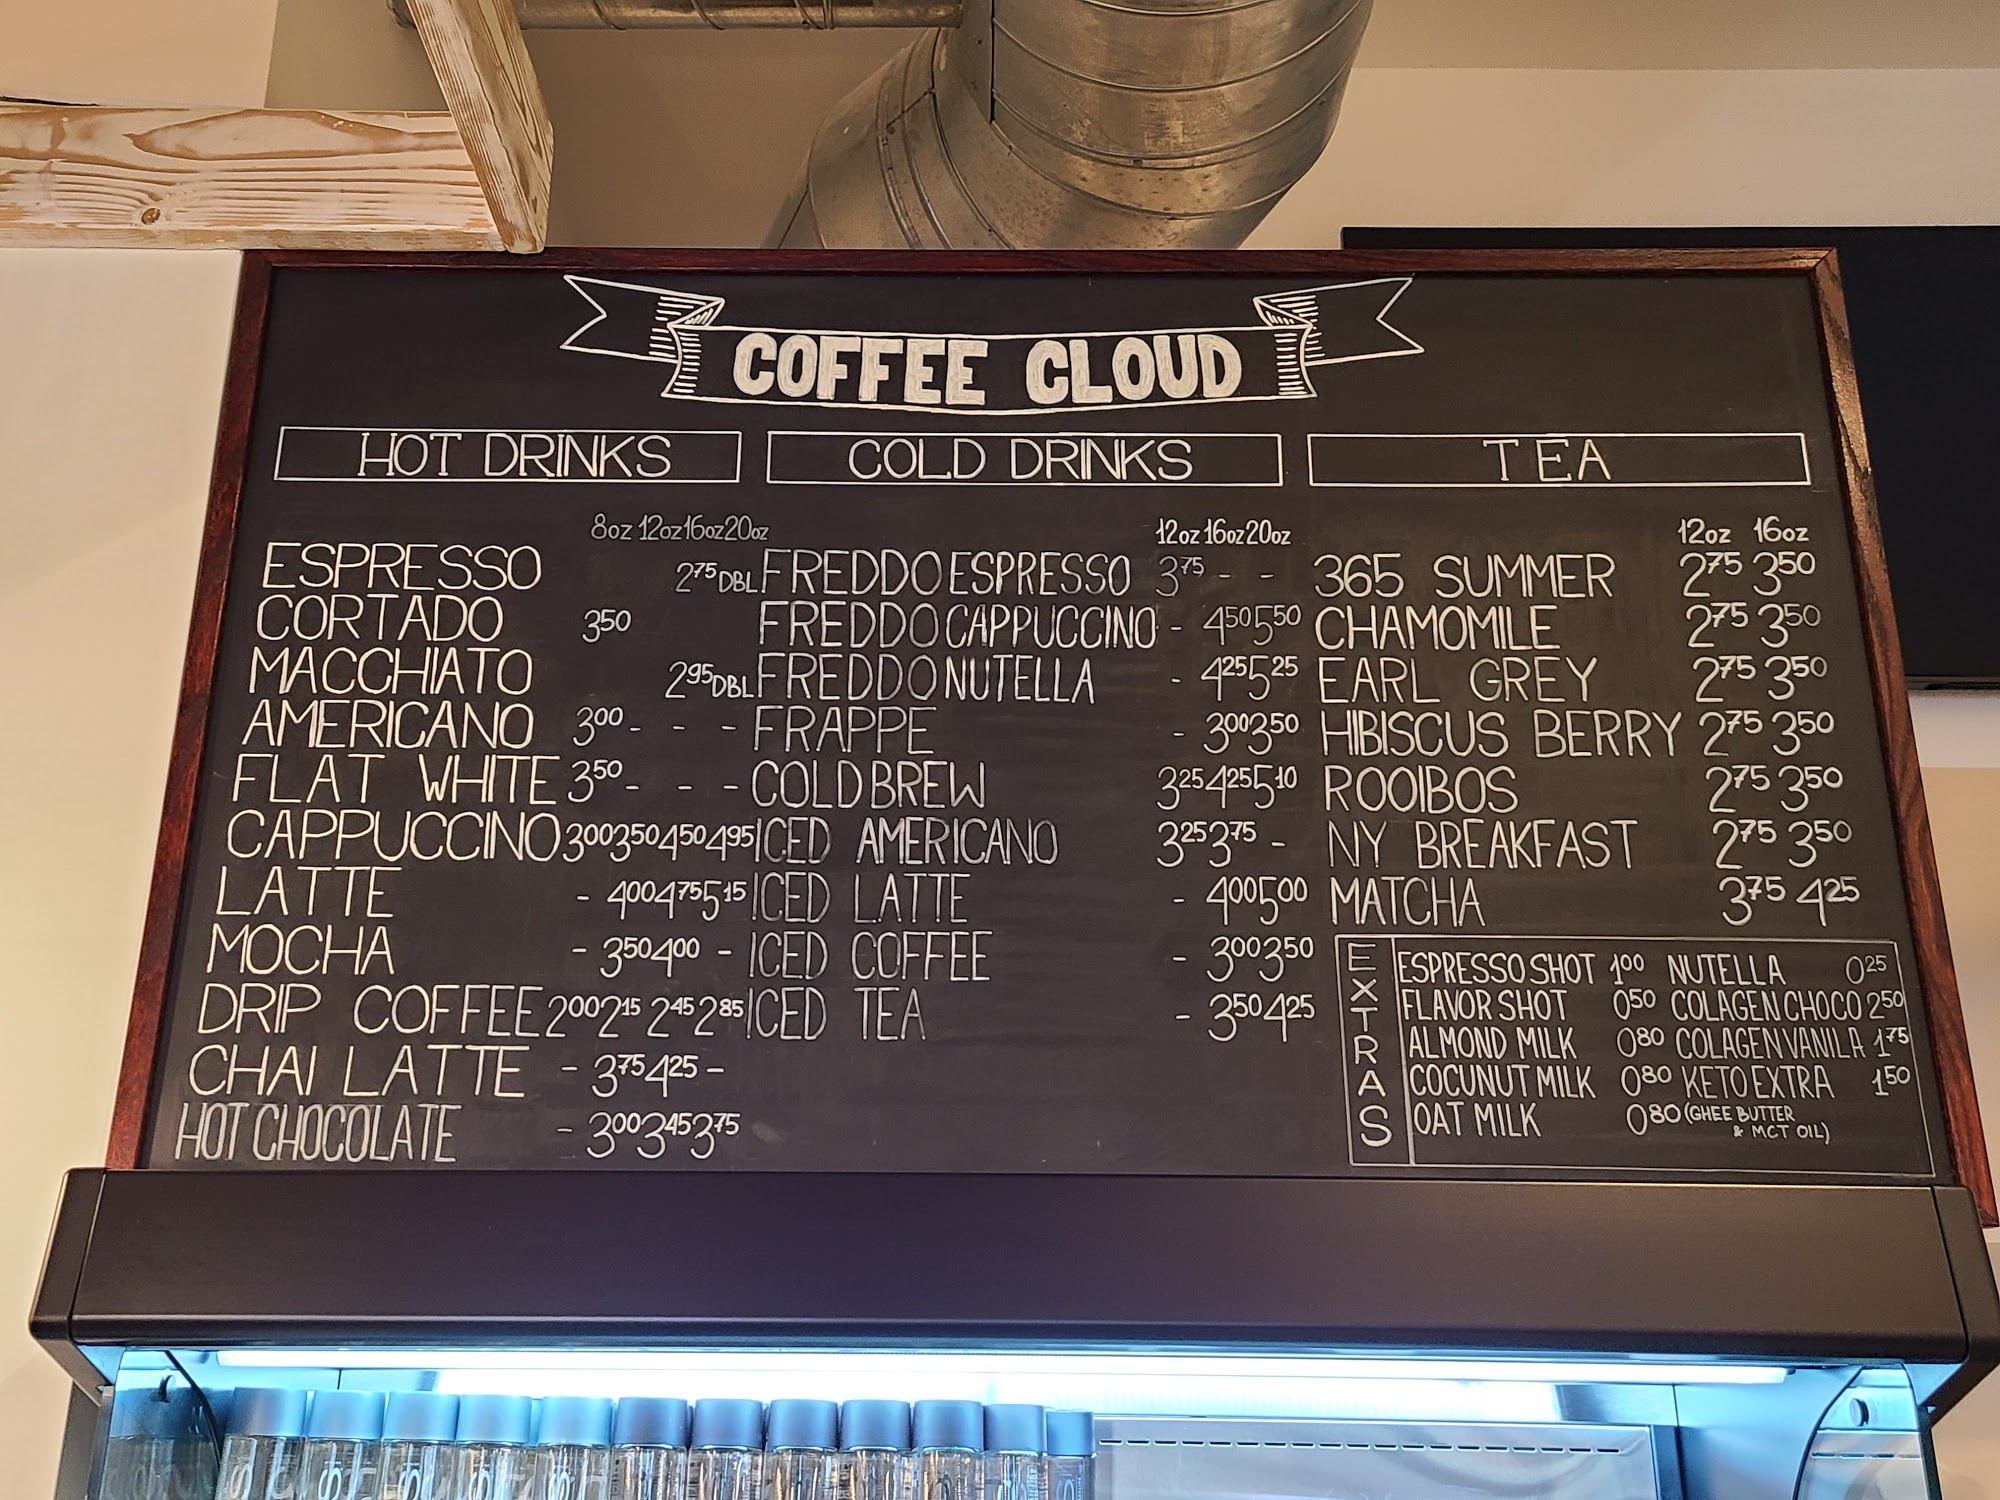 COFFEE CLOUD
HOT DRINKS
8oz 12oz 16oz 20oz
ESPRESSO 2.75 DBL
CORTADO 3.50
MACCHIATO 2.95 DBL
AMERICANO 3.00 - - -
FLAT WHITE 3.50 - - -
CAPPUCCINO 3.00 3.50 4.50 4.95
LATTE - 4.00 4.75 5.15
MOCHA - 3.50 4.00 -
DRIP COFFEE 2.00 2.15 2.45 2.85
CHAI LATTE - 3.75 4.25 -
HOT CHOCOLATE - 3.00 3.45 3.75
COLD DRINKS
12oz 16oz 20oz
FREDDO ESPRESSO 3.75 - -
FREDDO CAPPUCCINO - 4.50 5.50
FREDDO NUTELLA - 4.25 5.25
FRAPPE - 3.00 3.50
COLD BREW 3.25 4.25 5.10
ICED AMERICANO 3.25 3.75 -
ICED LATTE - 4.00 5.00
ICED COFFEE - 3.00 3.50
ICED TEA - 3.50 4.25
TEA
12oz 16oz
365 SUMMER 2.75 3.50
CHAMOMILE 2.75 3.50
EARL GREY 2.75 3.50
HIBISCUS BERRY 2.75 3.50
ROOIBOS 2.75 3.50
NY BREAKFAST 2.75 3.50
MATCHA 3.75 4.25
EXTRAS
ESPRESSO SHOT 1.00 NUTELLA 0.25
FLAVOR SHOT 0.50 COLAGEN CHOCO 2.50
ALMOND MILK 0.80 COLAGEN VANILA 1.75
COCUNUT MILK 0.80 KETO EXTRA 1.50
OAT MILK 0.80 (GHEE BUTTER
& MCT OIL)